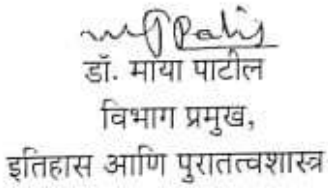 डॉ. माया पाटील
विभाग प्रमुख,
इतिहास आणि पुरातत्वशास्त्र